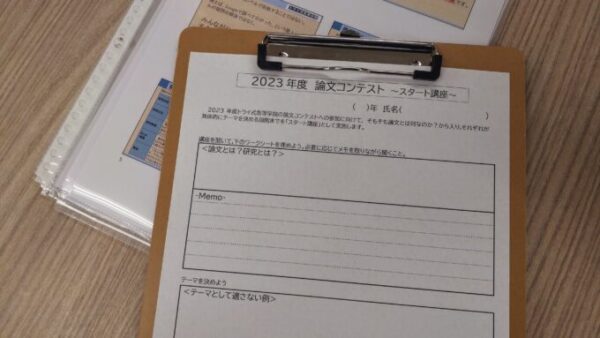 2023年度 論文コンテスト ～スタート講座～
( )年 氏名( )
2023年度トライ式高等学院の論文コンテストへの参加に向けて、そもそも論文とは何なのか?から入り、それぞれが
具体的にテーマを決める段階までを「スタート講座」として実施します。
講座を聞いて、下のワークシートを埋めよう。必要に応じてメモを取りながら聞くこと。
<論文とは?研究とは?>
-Memo-
テーマを決めよう
<テーマとして適さない例>